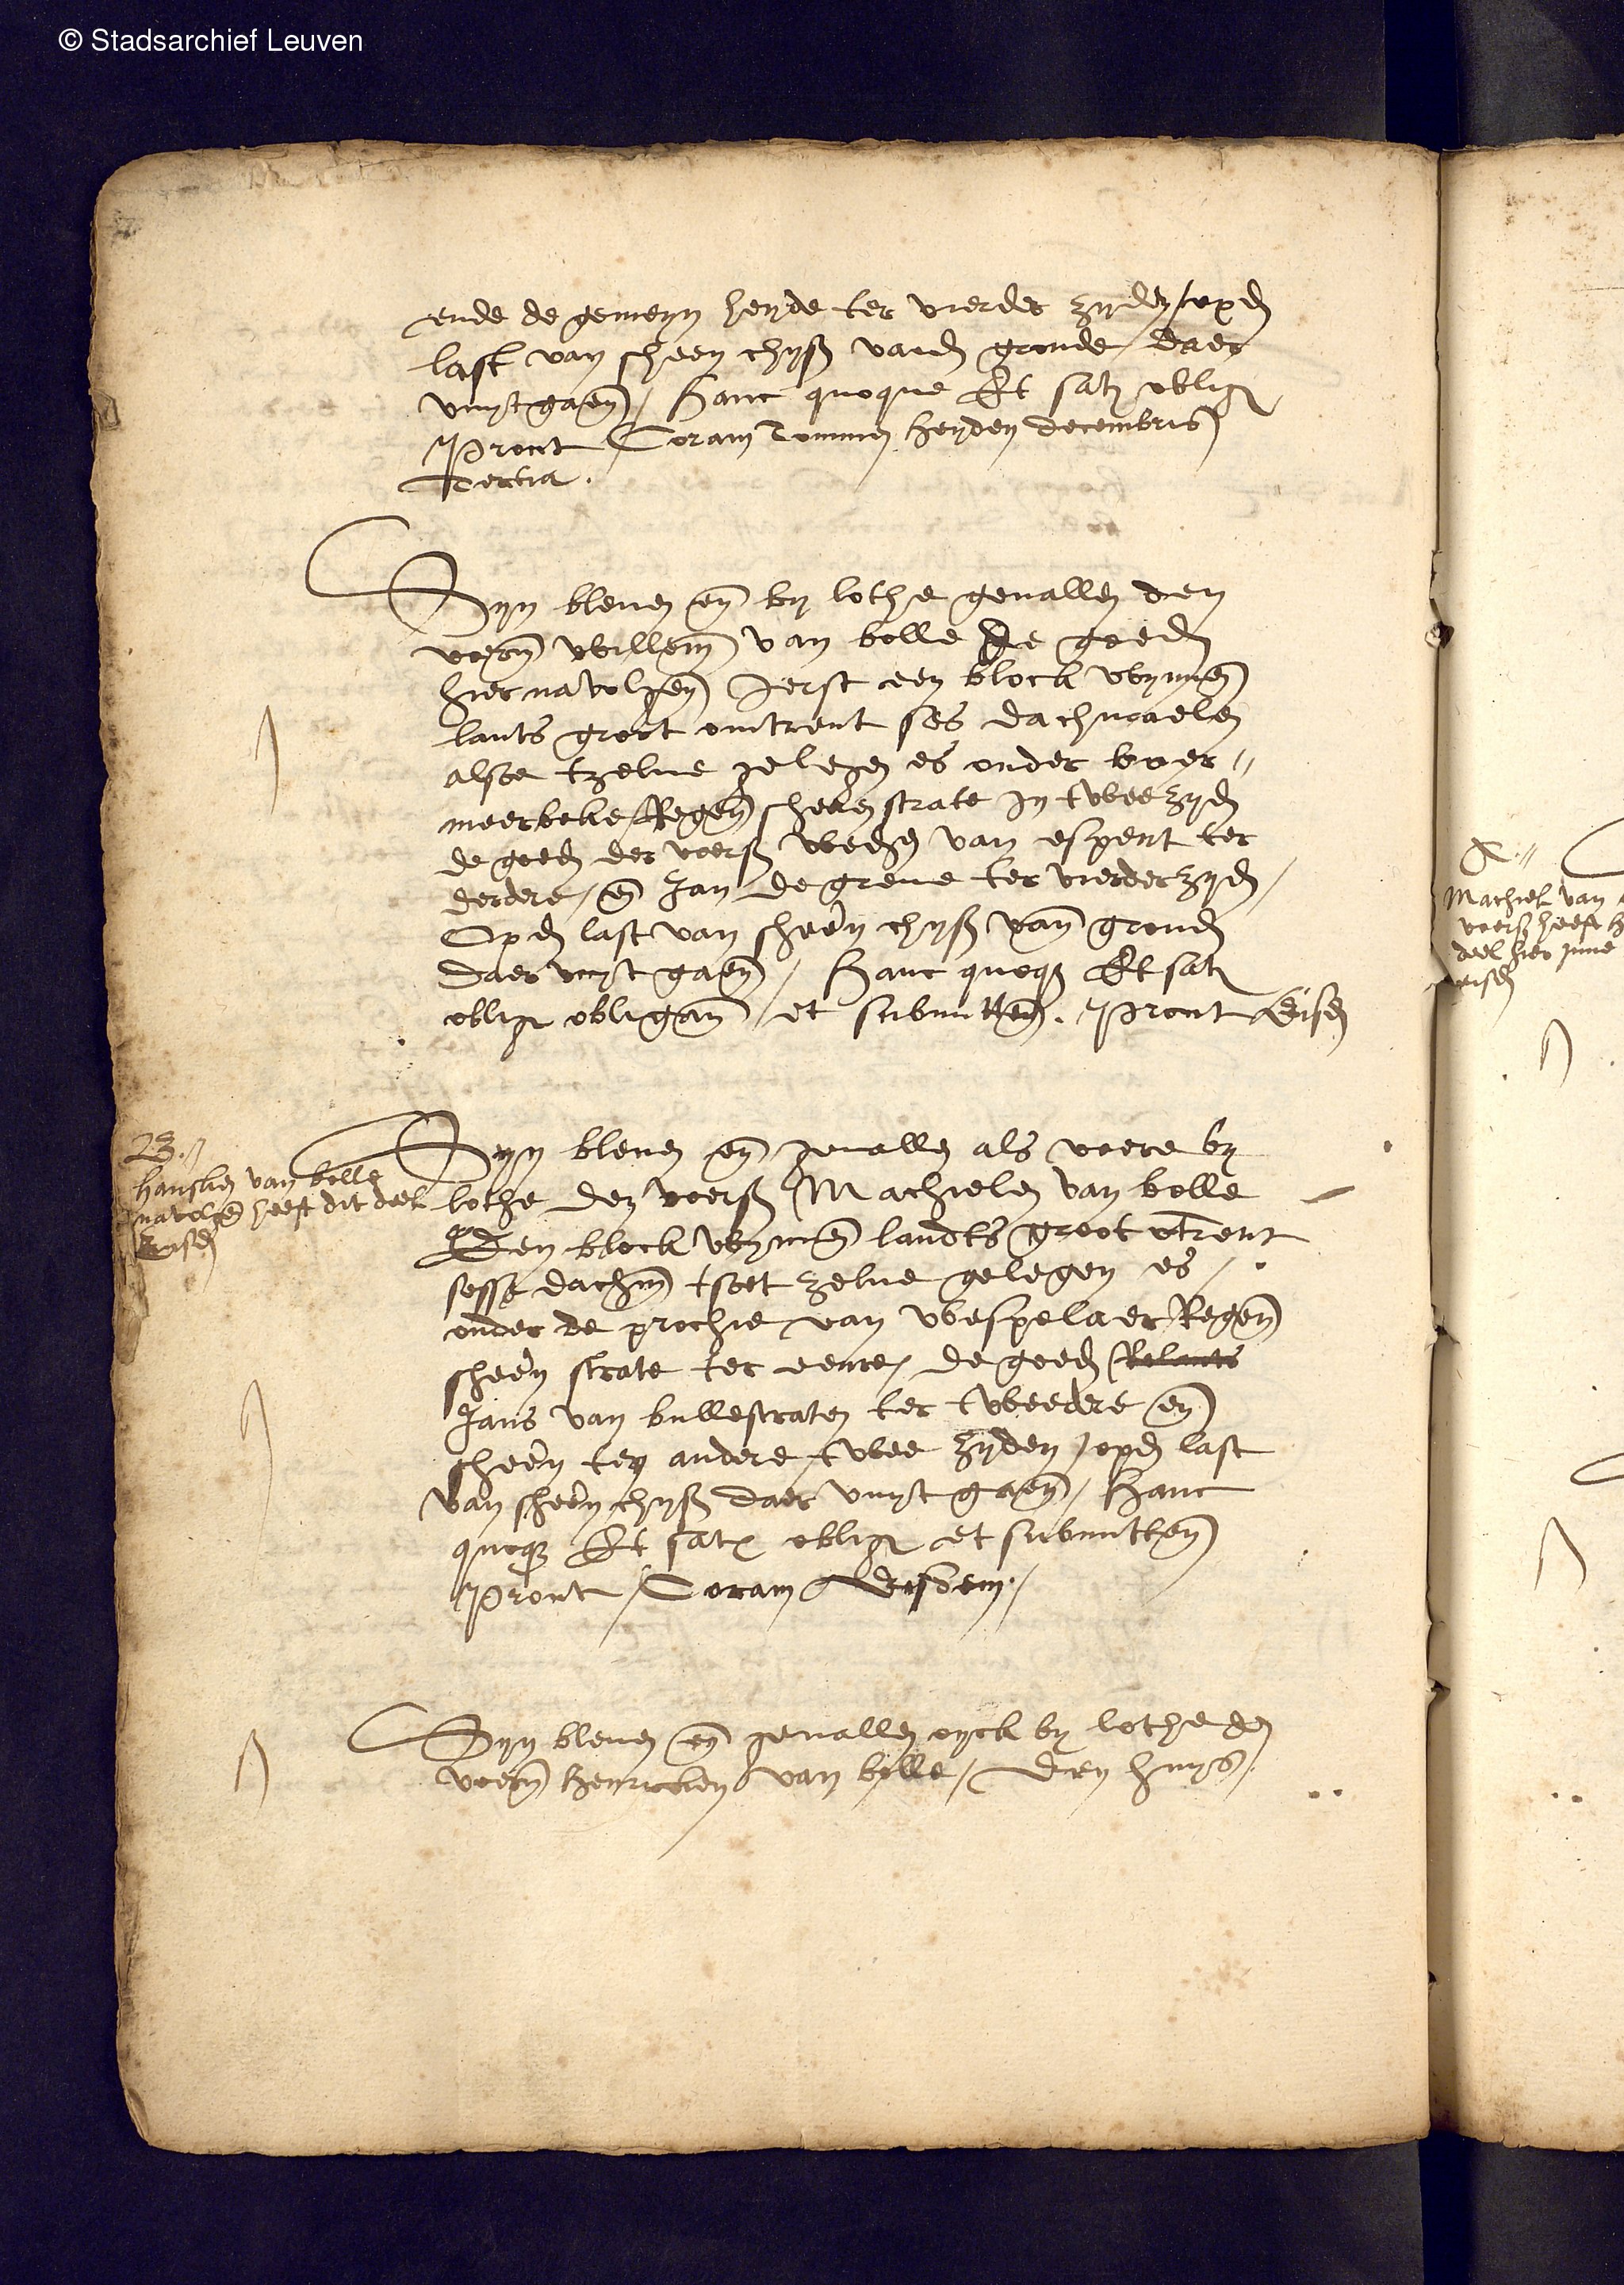 © Stadsarchief Leuven
ende de gemeyn heyde ter vierder zyden / opd
last van sheeren chyss vand gronde daer
vuyt gaen / hanc quoque Et sat oblig
Prout Coram Tomme heyden decembris
tertia .
Syn bleven en by lothe gevallen den
voern willem van bolle de goed
hier navolgen Ierst een block wynnen
lants groot omtrent ses dachmaelen
alsoe tzelve gelegen es onder
meerbeke Regen sheeren strate in twee zyd
de goed der voers weduwe van espent ter
derdere / en Jan de greve ter vierder zyd /
Opd last van sheeren chyss van grond
daer vuyt gaen / hanc quoque Et sat
oblig obligan et submitten . Prout Eisd
23 //
hansken van bolle
navolgen heeft dit deel
Eisd
Syn bleven en gevallen als voere by
lothe den voers Machielen van bolle
Een block wynnen landts groot omtrent
sesse dachm tsoet zelve gelegen es /
onder de prochie van wespelaer Regen
sheeren strate ter eenre / de goed
Jans van bullestraten ter tweedre en
sheeren ten andere twee zyden / opd last
van sheeren chyss daer vuyt gaen / hanc
quoque Et sat oblig et submitten
Prout / Coram Eisdem /
Syn bleven en gevallen oyck by lothe den
voern henricken van bolle / Een huys /
Machiel van
voers heeft
deel hier inne
eisd